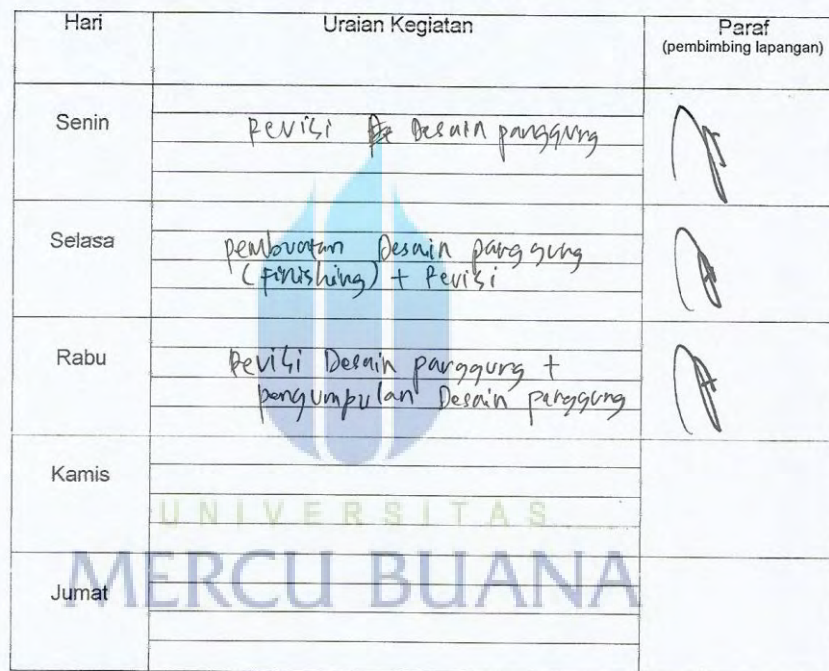 Hari Uraian Kegiatan Paraf
(pembimbing lapangan)
Senin
Revisi Desain panggung
Selasa
pembuatan Desain panggung
(finishing) + Revisi
Rabu
Revisi Desain panggung +
pengumpulan Desain panggung
Kamis
UNIVERSITAS
MERCU BUANA
Jumat